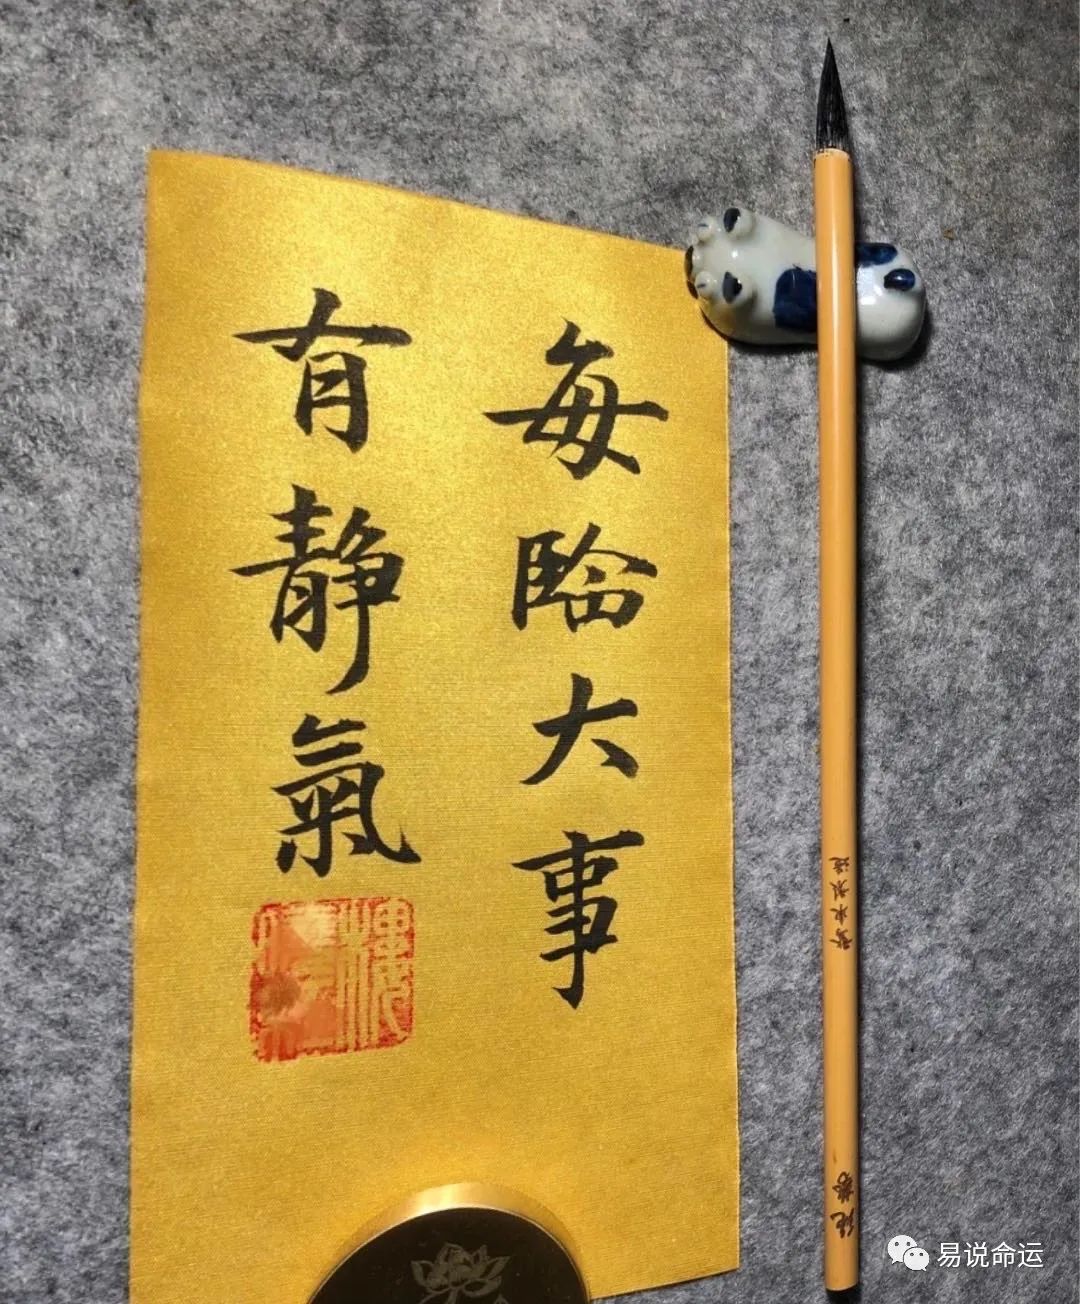 每臨大事
有靜氣
純紫
易说命运